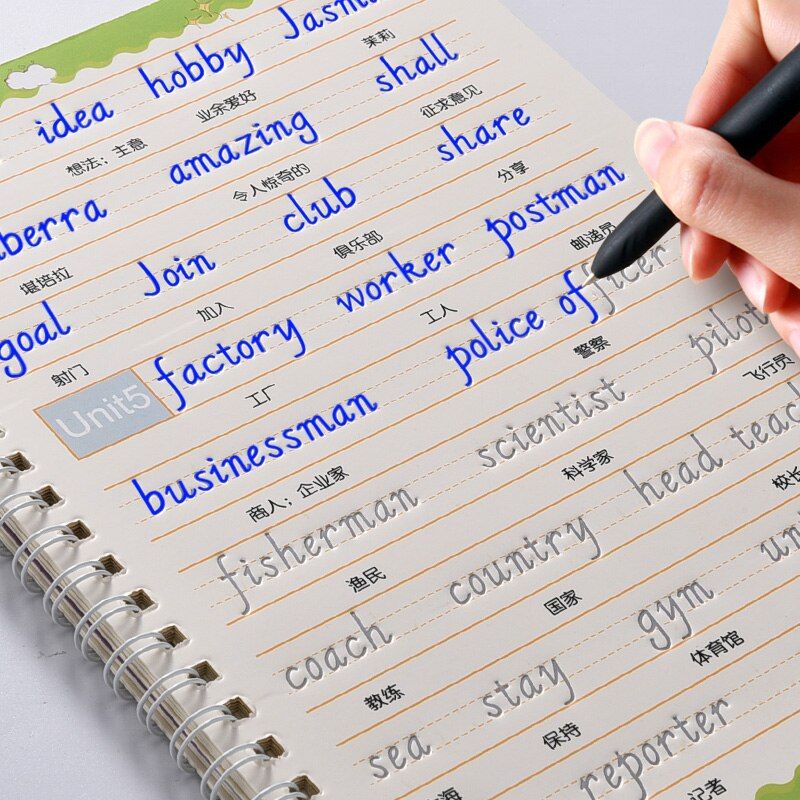 idea hobby Jasmi
想法；主意 业余爱好 茉莉
berra amazing shall
堪培拉 令人惊奇的 征求意见
goal Join club share
射门 加入 俱乐部 分享
Unit5 factory worker postman
工厂 工人 邮递员
businessman police officer
商人；企业家 警察
fisherman scientist pilot
渔民 科学家 飞行员
coach country head teac
教练 国家 校长
sea stay gym un
海 保持 体育馆
reporter
记者